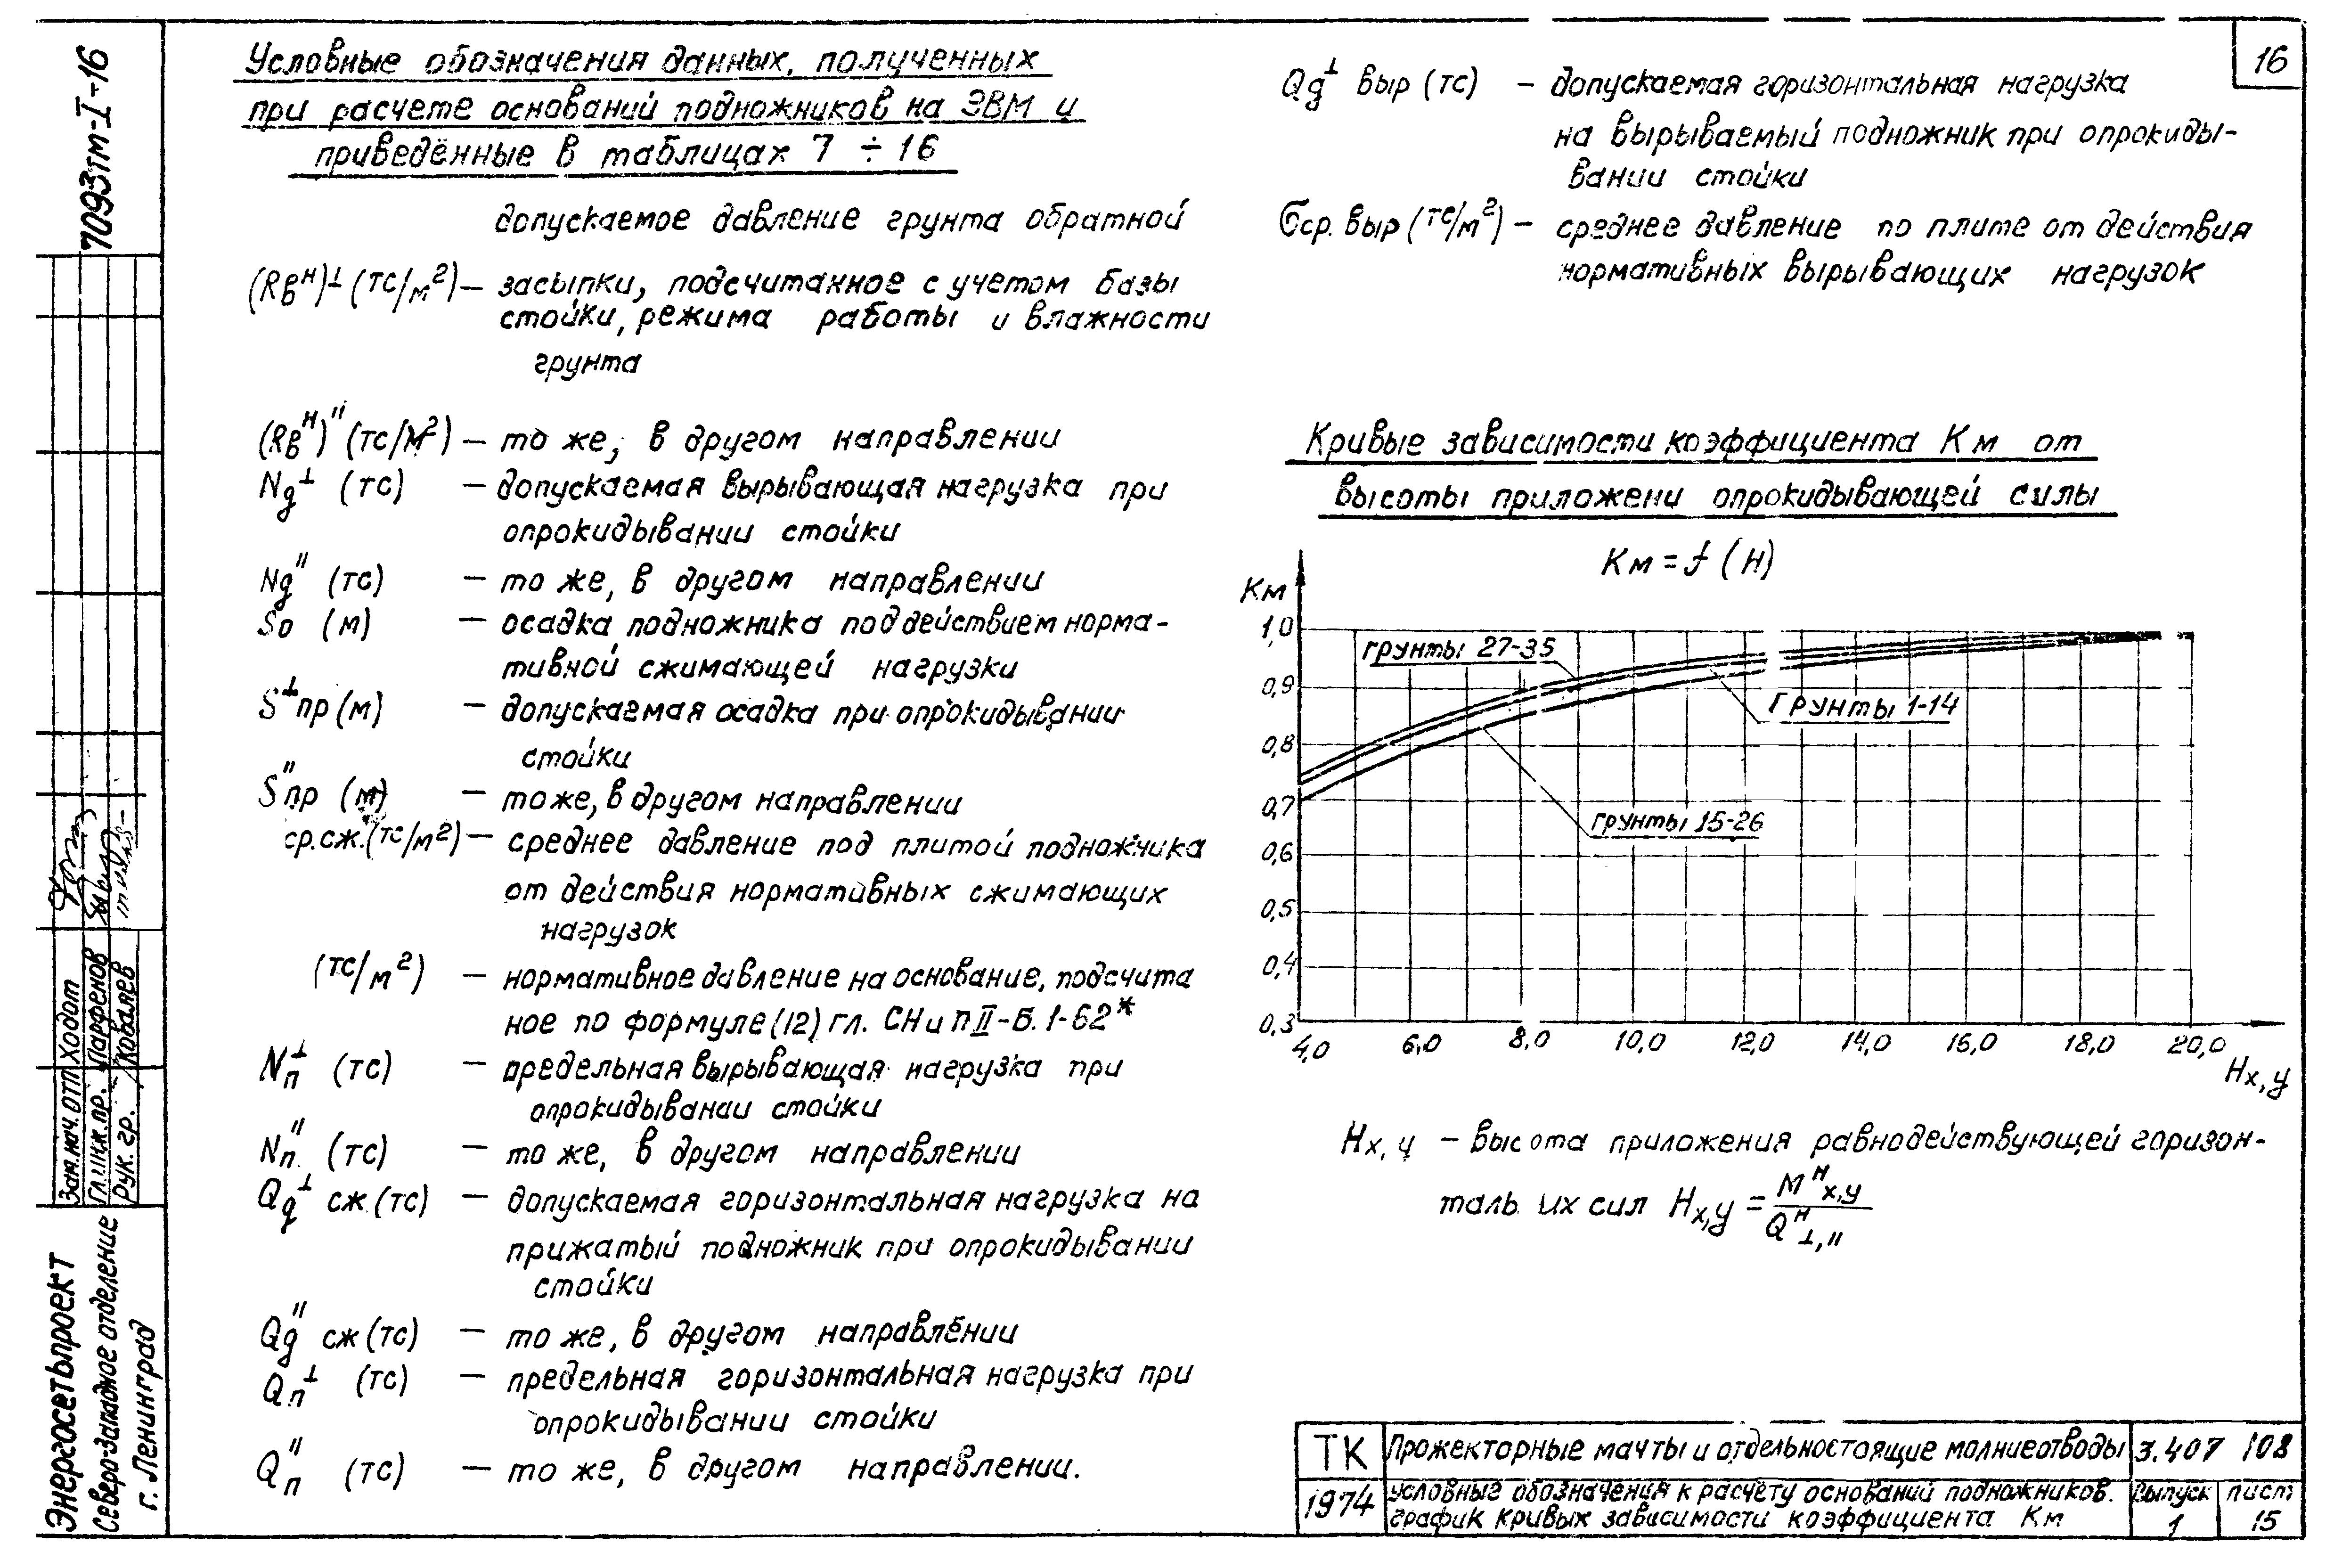 7093тм-I-16
16
Условные обозначения данных, полученных
при расчете оснований подножников на ЭВМ и
приведённые в таблицах 7 ÷ 16
допускаемое давление грунта обратной
(Rбᴴ)⊥ (тс/м²) — засыпки, подсчитанное с учетом базы
стойки, режима работы и влажности
грунта
(Rбᴴ)" (тс/м²) — то же, в другом направлении
Ng⊥ (тс) — допускаемая вырывающая нагрузка при
опрокидывании стойки
Ng" (тс) — то же, в другом направлении
So (м) — осадка подножника под действием норма-
тивной сжимающей нагрузки
S⊥пр (м) — допускаемая осадка при опрокидывании
стойки
S"пр (м) — то же, в другом направлении
ср.сж. (тс/м²) — среднее давление под плитой подножника
от действия нормативных сжимающих
нагрузок
(тс/м²) — нормативное давление на основание, подсчита
ное по формуле (12) гл. СНиП II-Б. 1-62*
Nп⊥ (тс) — предельная вырывающая нагрузка при
опрокидывании стойки
Nп" (тс) — то же, в другом направлении
Qg⊥ сж (тс) — допускаемая горизонтальная нагрузка на
прижатый подножник при опрокидывании
стойки
Qg" сж (тс) — то же, в другом направлении
Qп⊥ (тс) — предельная горизонтальная нагрузка при
опрокидывании стойки
Qп" (тс) — то же, в другом направлении.
Qg⊥ выр (тс) — допускаемая горизонтальная нагрузка
на вырываемый подножник при опрокиды-
вании стойки
σср. выр (тс/м²) — среднее давление по плите от действия
нормативных вырывающих нагрузок
Кривые зависимости коэффициента Км от
высоты приложени опрокидывающей силы
Км = f (H)
Км
1,0
0,9
0,8
0,7
0,6
0,5
0,4
0,3
грунты 27-35
Грунты 1-14
грунты 15-26
4,0 6,0 8,0 10,0 12,0 14,0 16,0 18,0 20,0
Hx,y
Hx,y — высота приложения равнодействующей горизон-
таль их сил Hx,y = Mᴴx,y / Qᴴ⊥,"
Зам.нач.отп Ходот
Гл.инж.пр. Парфенов
Рук. гр. Коваляев
Энергосетьпроект
Северо-западное отделение
г. Ленинград
ТК Прожекторные мачты и отдельностоящие молниеотводы 3.407 108
1974 условные обозначения к расчёту оснований подножников. Выпуск лист
график кривых зависимости коэффициента Км 1 15